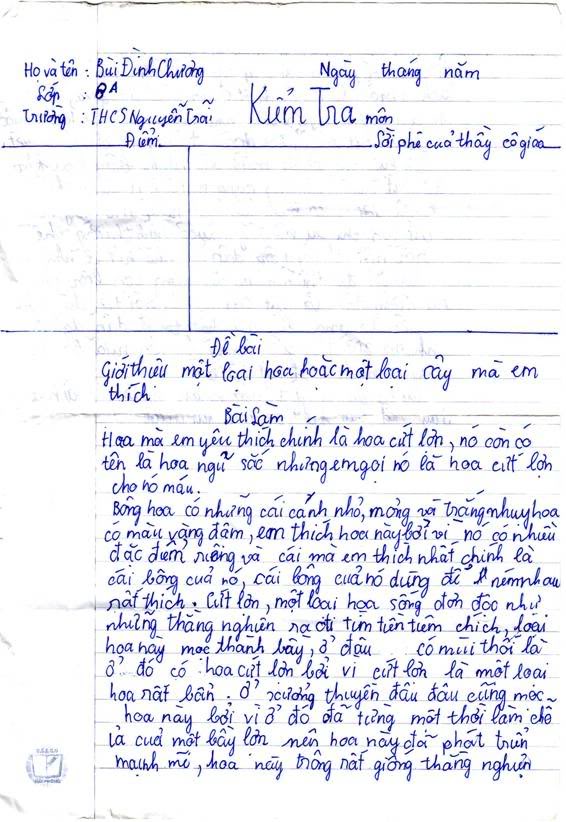 Họ và tên : Bùi Đình Chương Ngày tháng năm
Lớp : 8A
Trường : THCS Nguyễn Trãi Kiểm Tra môn
Điểm Lời phê của thầy cô giáo
Đề bài
Giới thiệu một loại hoa hoặc một loại cây mà em
thích
Bài Làm
Hoa mà em yêu thích chính là hoa cứt lợn, nó còn có
tên là hoa ngũ sắc nhưng em gọi nó là hoa cứt lợn
cho nó máu.
Bông hoa có những cái cánh nhỏ, mỏng và trắng nhuỵ hoa
có màu vàng đậm, em thích hoa này bởi vì nó có nhiều
đặc điểm riêng và cái mà em thích nhất chính là
cái bông của nó, cái bông của nó dùng để ném nhau
rất thích. Cứt lợn, một loài hoa sống đơn độc như
những thằng nghiện ra đi tìm tiên tiêm chích, loài
hoa này mọc thành bầy, ở đâu có mùi thối là
ở đó có hoa cứt lợn bởi vì cứt lợn là một loại
hoa rất bẩn. Ở xưởng thuyền đâu đâu cũng mọc
hoa này bởi vì ở đó đã từng một thời làm chỗ
ỉa của một bầy lợn nên hoa này đã phát triển
mạnh mẽ, hoa này trông rất giống thằng nghiện